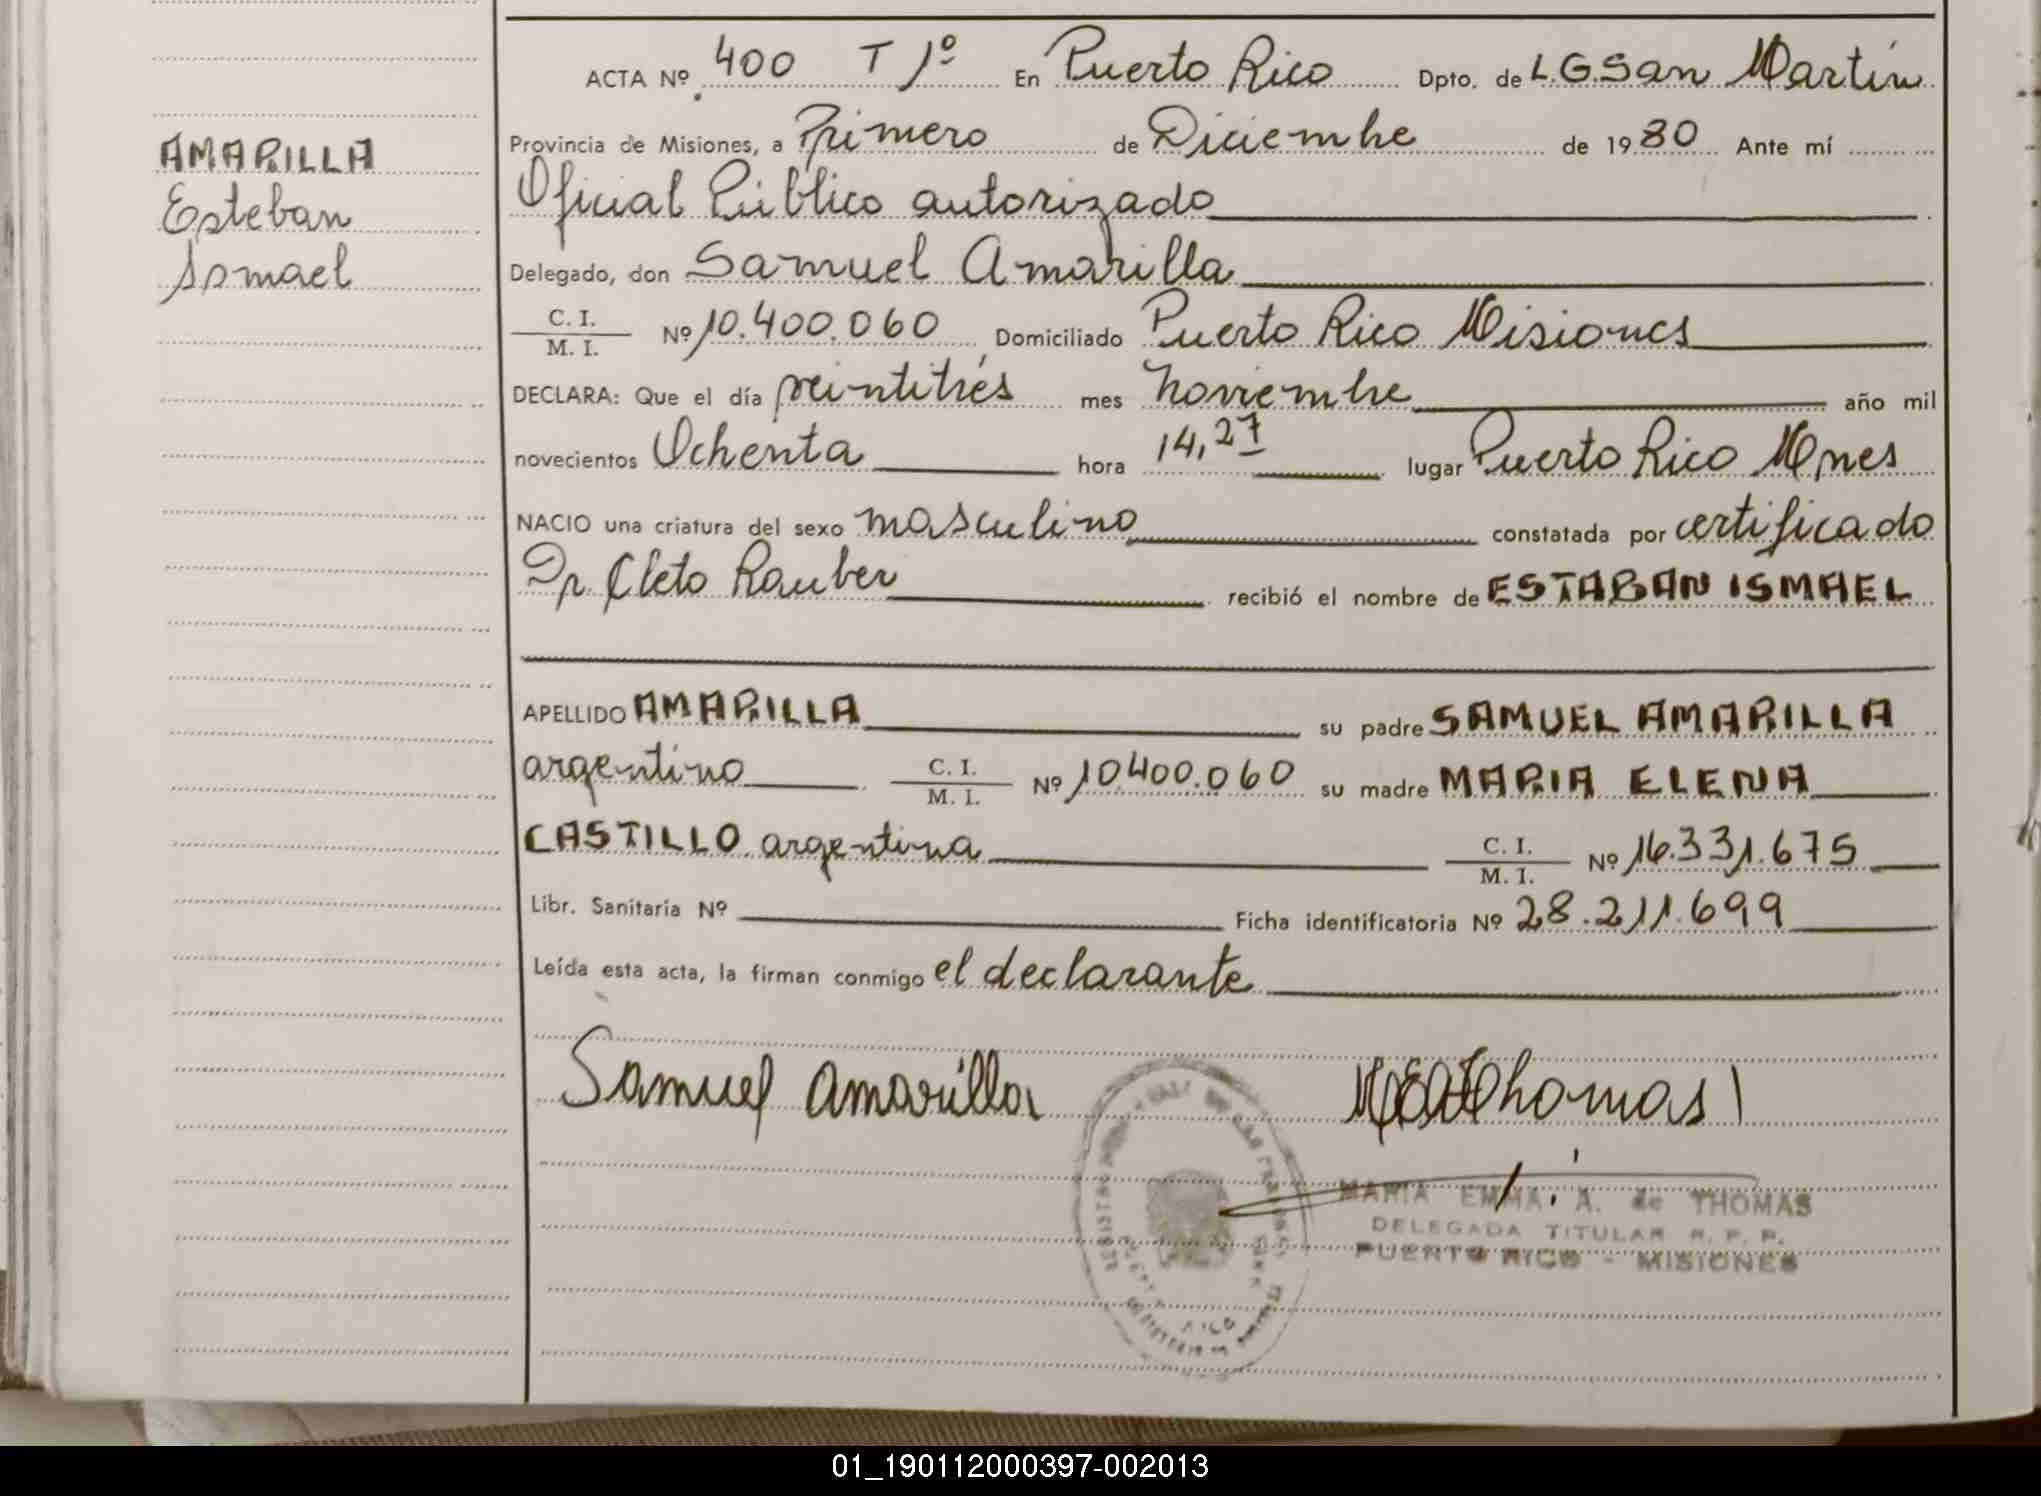 AMARILLA
Esteban
Ismael
ACTA Nº 400 T 1º En Puerto Rico Dpto. de L.G.San Martín
Provincia de Misiones, a Primero de Diciembre de 1980 Ante mí
Oficial Público autorizado
Delegado, don Samuel Amarilla
C. I.
M. I. Nº 10.400.060 Domiciliado Puerto Rico Misiones
DECLARA: Que el día veintitrés mes noviembre año mil
novecientos Ochenta hora 14,27 lugar Puerto Rico Mnes
NACIO una criatura del sexo masculino constatada por certificado
Dr. Cleto Rauber recibió el nombre de ESTABAN ISMAEL
APELLIDO AMARILLA su padre SAMUEL AMARILLA
argentino C. I.
M. I. Nº 10.400.060 su madre MARIA ELENA
CASTILLO argentina C. I.
M. I. Nº 16.331.675
Libr. Sanitaria Nº Ficha identificatoria Nº 28.211.699
Leída esta acta, la firman conmigo el declarante
Samuel Amarilla
Thomas
MARIA EMMA A. de THOMAS
DELEGADA TITULAR R. P. P.
PUERTO RICO - MISIONES
01_190112000397-002013